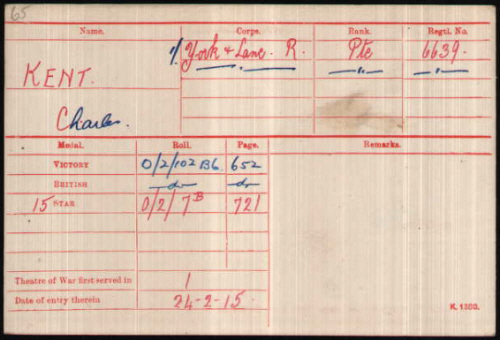 65
Name. Corps. Rank. Regtl. No.
KENT. 1/ York & Lanc. R. Pte 6639.
" " "
Charles.
Medal. Roll. Page. Remarks.
VICTORY O/2/102 B6. 652
BRITISH do do
15 STAR O/2/7B 721
Theatre of War first served in 1
Date of entry therein 24-2-15.
K. 1380.